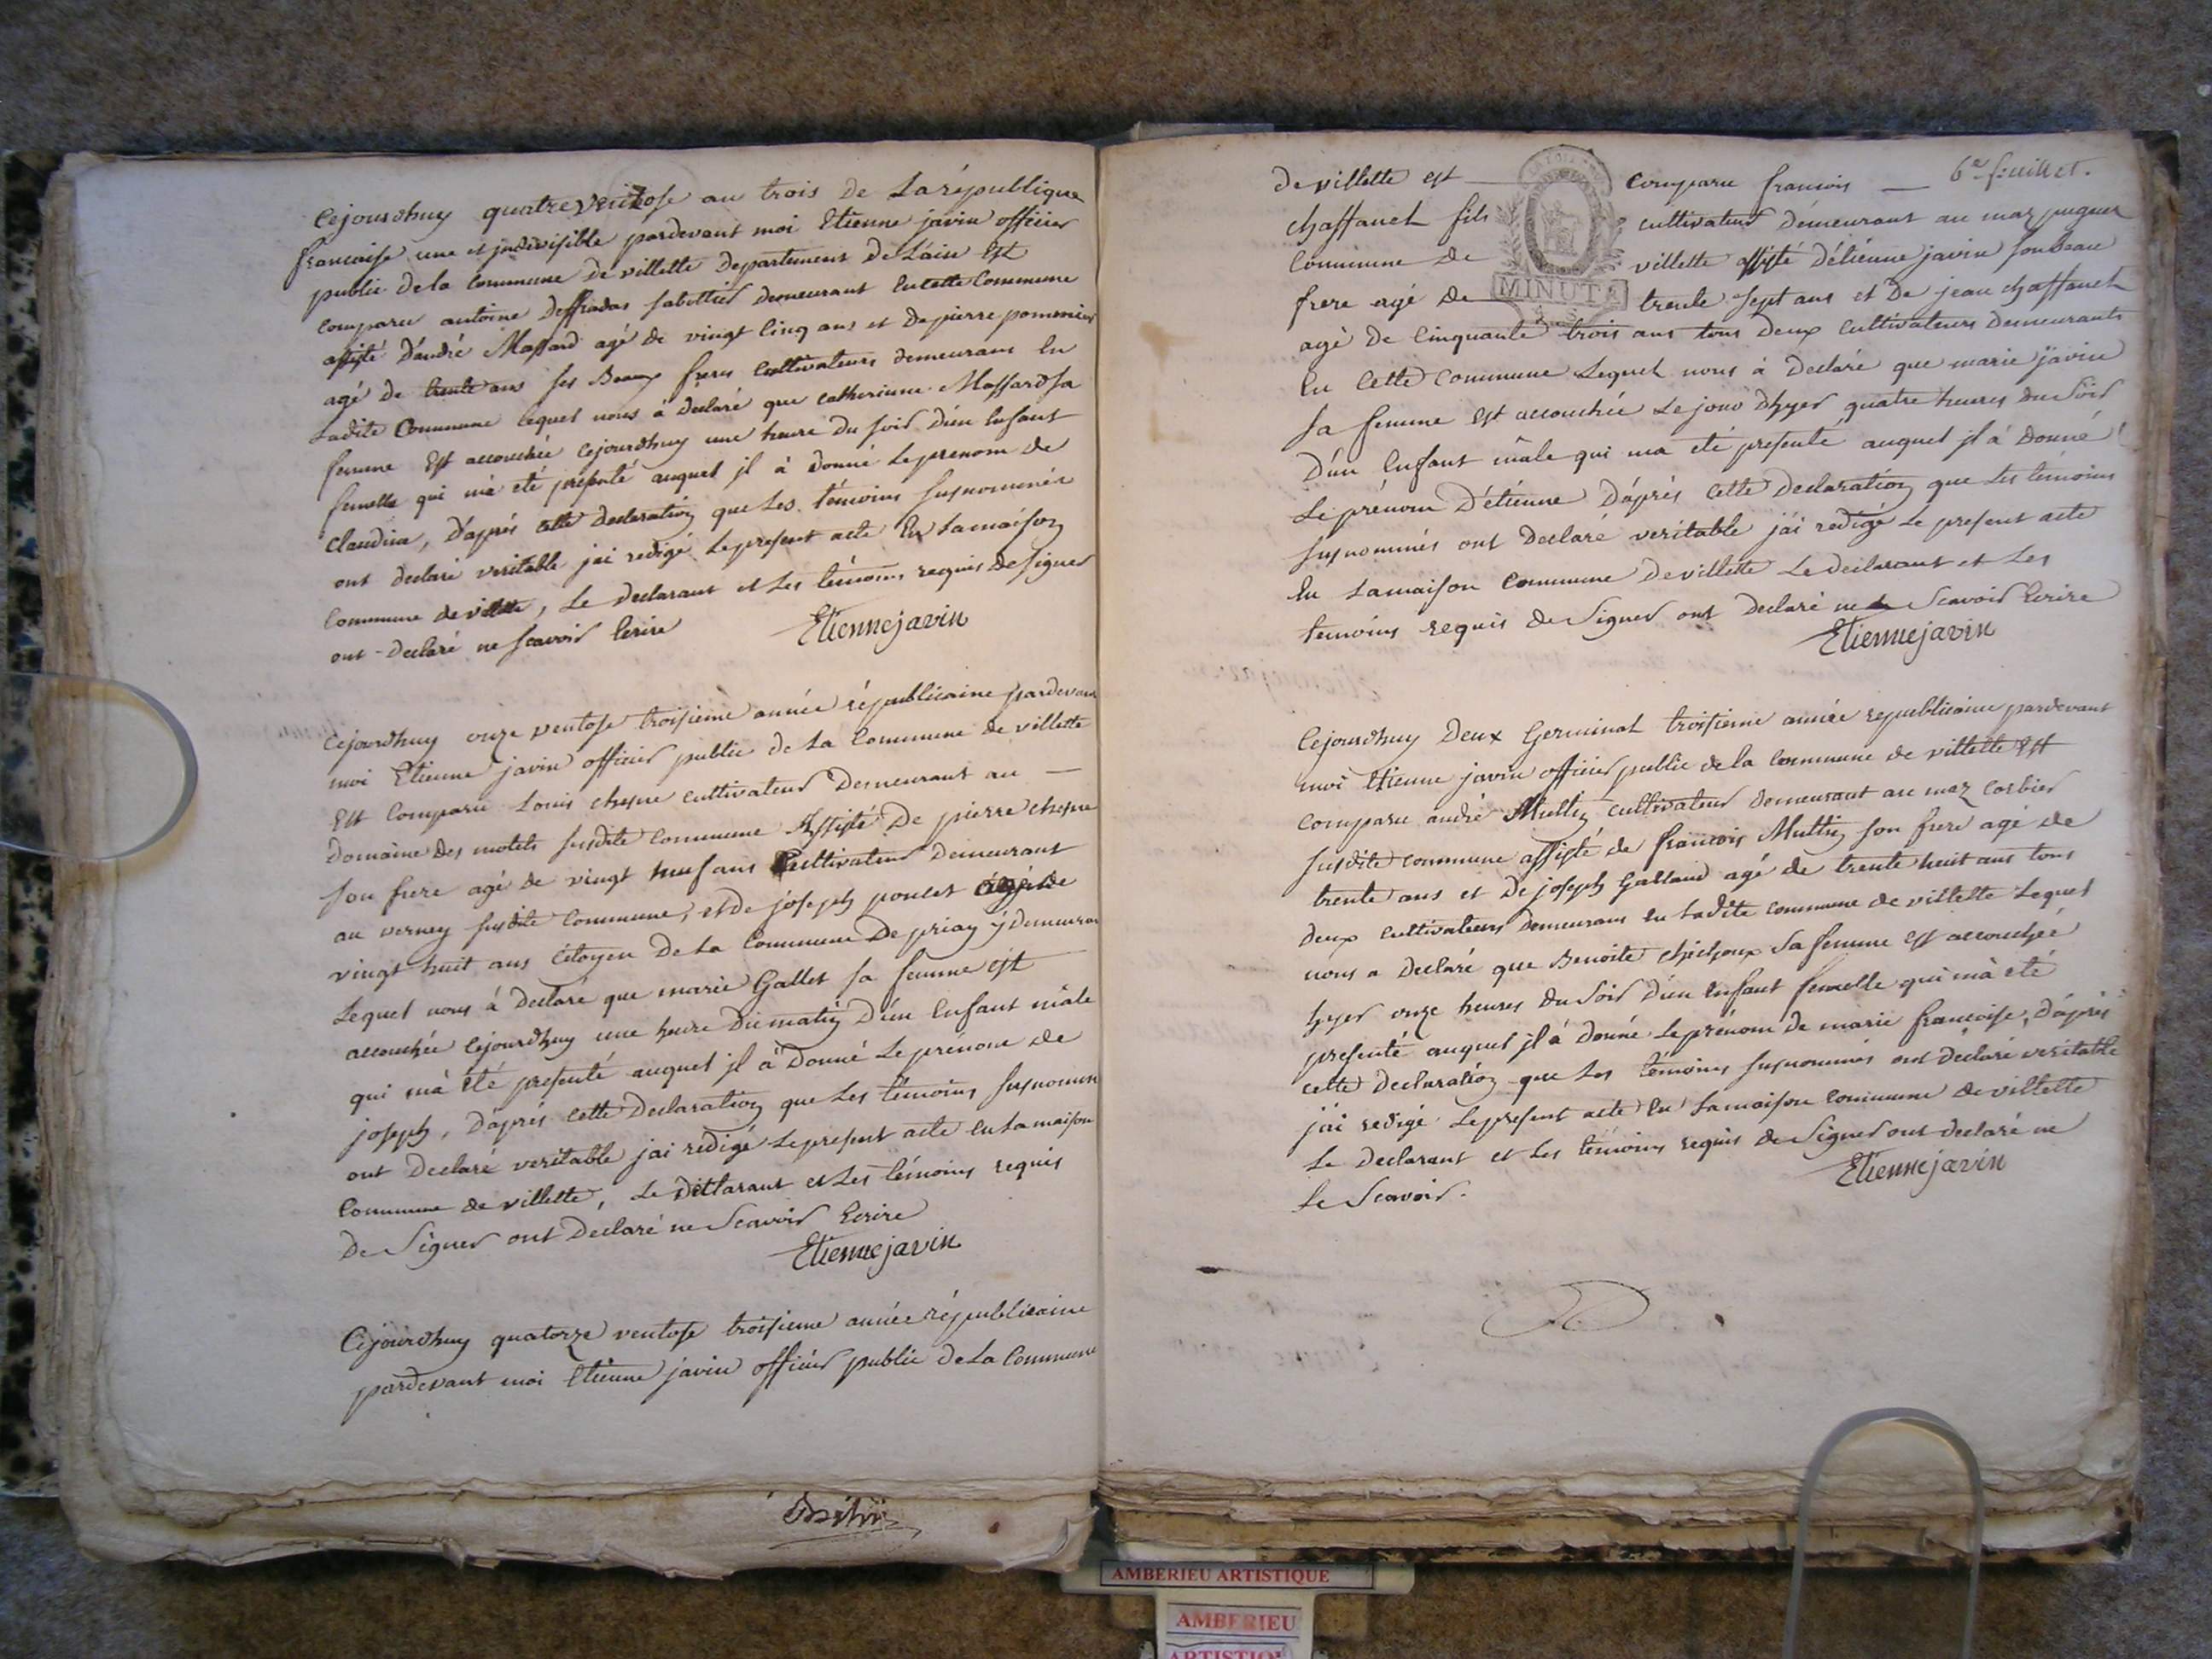 Cejourdhuy quatre ventose an trois de La république
francaise une et jndivisible pardevant moi Etienne javin officier
public de la Commune de villette Departement de L'ain Est
comparu antoine Deffradas sabottier demeurant En cette Commune
assisté D'andré Massard agé de vingt Cinq ans et de pierre pommier
agé de trente ans ses Beaux freres Cultivateurs demeurans En
Ladite Commune lequel nous à declaré que catherinne Massard sa
femme Est accouchée Cejourdhuy une heure du soir D'un Enfant
femelle qui m'à eté presenté auquel jl à donné Le prenom de
Claudine, D'après cette Declaration que Les témoins susnommés
ont declaré veritable jai redigé Le present acte En La maison
Commune de villette, Le Declarant et Les témoins requis de signer
ont Declaré ne scavoir Ecrire
Etienne javin
Cejourdhuy onze ventose troisieme année républicaine pardevant
moi Etienne javin officier public de La Commune de villette
Est Comparu Louis chesne cultivateur Demeurant au —
Domaine des motets susdite Commune Assisté De pierre chesne
son frere agé de vingt neuf ans Cultivateur Demeurant
au verney susdite Commune, et de joseph poncet agé de
vingt huit ans Citoyen de La Commune De priay ÿ demeurant
Lequel nous à Declaré que marie Gallet sa femme est
accouchée Cejourdhuy une heure du matin D'un Enfant mâle
qui mà Eté presenté auquel jl à Donné Le prénom de
joseph, D'après cette Declaration que Les témoins susnommés
ont Declaré veritable jai redigé Le present acte En La maison
Commune de villette, Le Déclarant et Les témoins requis
De Signer ont Déclaré ne Scavoir Ecrire
Etienne javin
Cejourdhuy quatorze ventose troisieme année républicaine
pardevant moi Etienne javin officier public De La Commune
6e feuillet.
De villette est — comparu francois —
chaffanel fils cultivateur Demeurant au maz
Commune de villette assisté D'étienne javin son beau
frere agé de trente sept ans et De jean chaffanel
agé de Cinquante trois ans tous Deux Cultivateurs Demeurants
En Cette Commune Lequel nous à Declaré que marie javin
sa femme Est accouchée Le jour D'hyer quatre heures du Soir
D'un Enfant mâle qui ma eté presenté auquel jl à Donné
Le prénom D'étienne D'après Cette Declaration que Les témoins
susnommés ont Declaré veritable j'ai redigé Le present acte
En La maison Commune De villette Le declarant et Les
temoins requis De Signer ont Declaré ne Scavoir Ecrire
Etienne javin
MINUTE
Cejourdhuy Deux Germinal troisieme année republicaine pardevant
moi Etienne javin officier public de la Commune de villette Est
comparu andré Multin cultivateur Demeurant au maz Corbier
susdite commune assisté de francois Multin son frere agé de
trente ans et De joseph Galland agé de trente huit ans tous
deux cultivateurs Demeurans En Ladite commune de villette Lequel
nous a Declaré que Benoite chichoux Sa femme est accouchée
hyer onze heures du Soir D'un Enfant femelle qui m'à eté
presenté auquel jl à Donné Le prénom de marie francoise, D'après
cette Declaration que Les témoins susnommés ont déclaré veritable
j'ai redigé Le present acte En La maison Commune de villette
Le Declarant et Les témoins requis de Signer ont declaré ne
Le Scavoir.
Etienne javin
AMBERIEU ARTISTIQUE
AMBERIEU
ARTISTIQUE